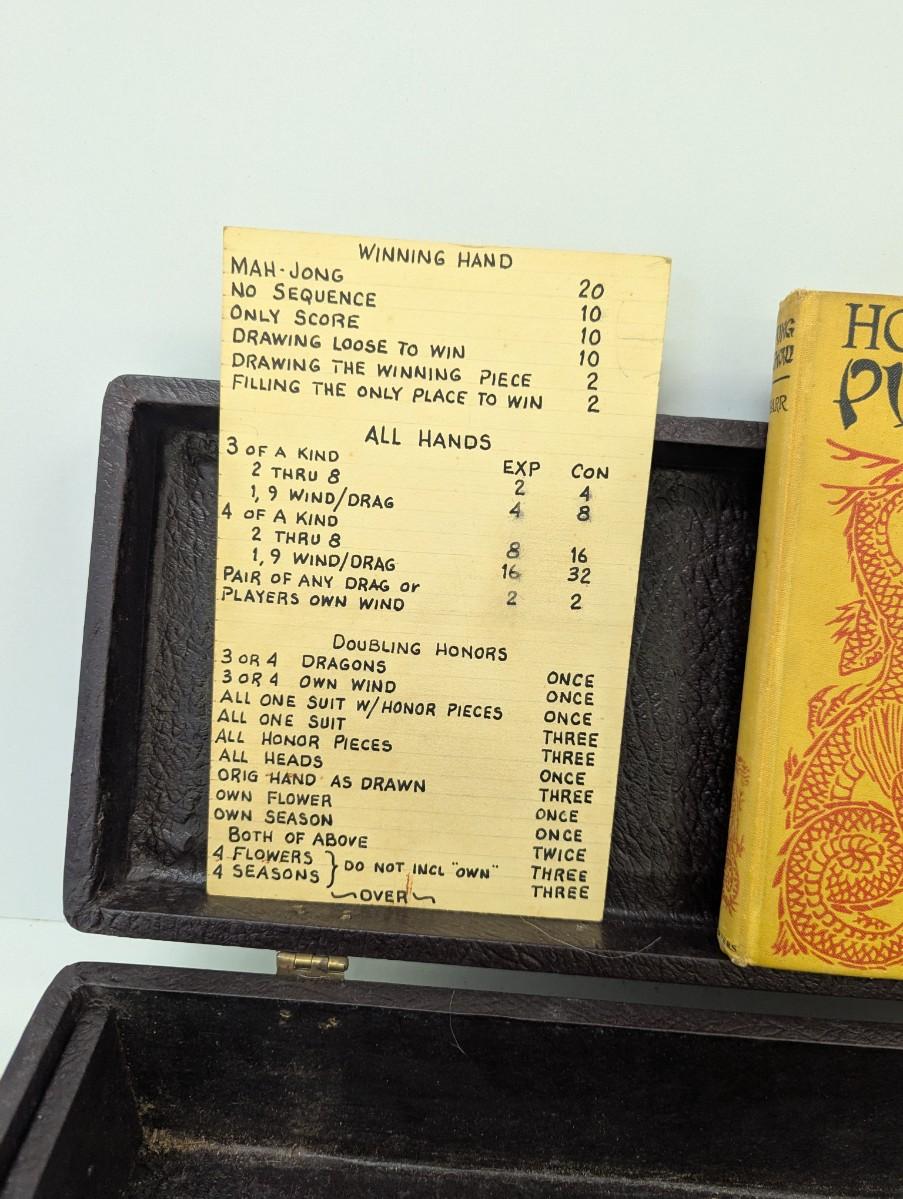 WINNING HAND
MAH-JONG 20
NO SEQUENCE 10
ONLY SCORE 10
DRAWING LOOSE TO WIN 10
DRAWING THE WINNING PIECE 2
FILLING THE ONLY PLACE TO WIN 2
ALL HANDS
3 OF A KIND EXP CON
2 THRU 8 2 4
1, 9 WIND/DRAG 4 8
4 OF A KIND
2 THRU 8 8 16
1, 9 WIND/DRAG 16 32
PAIR OF ANY DRAG or
PLAYERS OWN WIND 2 2
DOUBLING HONORS
3 OR 4 DRAGONS ONCE
3 OR 4 OWN WIND ONCE
ALL ONE SUIT W/HONOR PIECES ONCE
ALL ONE SUIT THREE
ALL HONOR PIECES THREE
ALL HEADS ONCE
ORIG HAND AS DRAWN THREE
OWN FLOWER ONCE
OWN SEASON ONCE
BOTH OF ABOVE TWICE
4 FLOWERS } DO NOT INCL "OWN" THREE
4 SEASONS THREE
~OVER~
HO